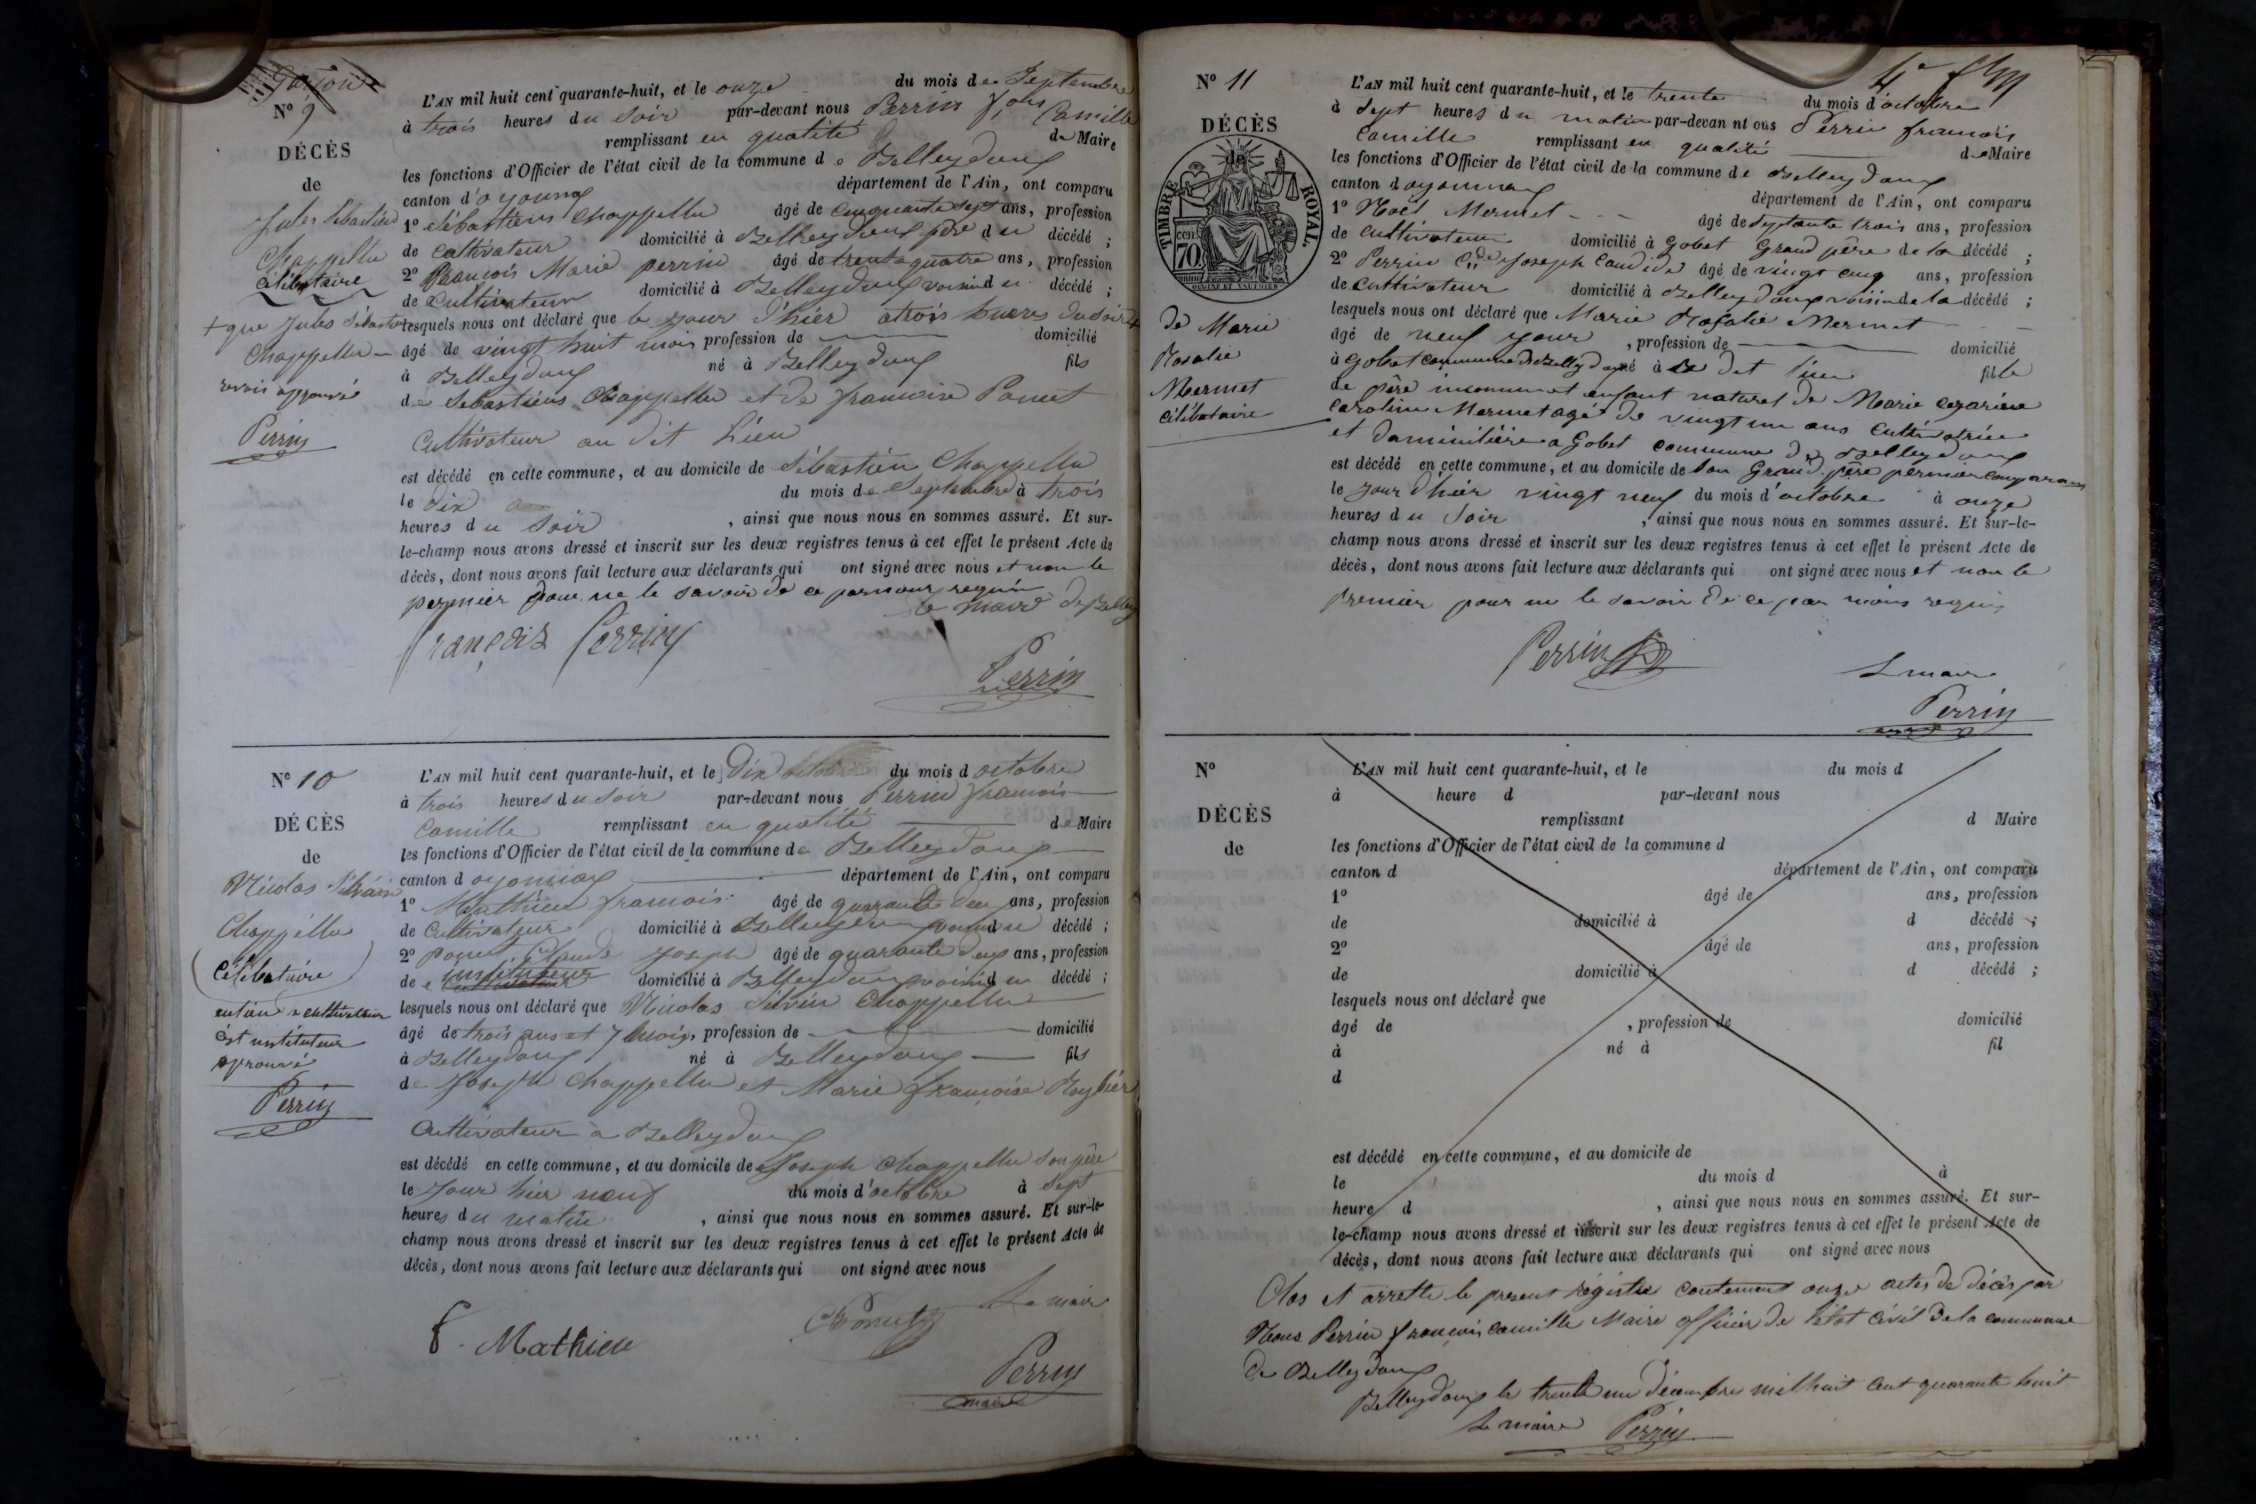 N° 9
DÉCÈS
de
Jules Sébastien
Chappellu
Célibataire
+ que Jules Sébastien
Chappellu
renvoi approuvé
Perrin
L'AN mil huit cent quarante-huit, et le onze du mois de Septembre
à trois heures du Soir par-devant nous Perrin fçois Camille
remplissant en qualité de Maire
les fonctions d'Officier de l'état civil de la commune de Belleydoux
canton d'oyonnax département de l'Ain, ont comparu
1° Sébastiens Chappellu âgé de cinquante sept ans, profession
de Cultivateur domicilié à Belleydoux père du décédé ;
2° François Marie perrin âgé de trente quatre ans, profession
de Cultivateur domicilié à Belleydoux voisin du décédé ;
lesquels nous ont déclaré que le jour d'hier a trois heures du soir +
âgé de vingt huit mois profession de domicilié
à Belleydoux né à Belleydoux fils
de Sébastiens Chappellu et de françoise Poncet
Cultivateur au dit Lieu
est décédé en cette commune, et au domicile de Sébastien Chappellu
le dix du mois de Septembre à trois
heures du Soir , ainsi que nous nous en sommes assuré. Et sur-
le-champ nous avons dressé et inscrit sur les deux registres tenus à cet effet le présent Acte de
décès, dont nous avons fait lecture aux déclarants qui ont signé avec nous et non le
premier pour ne le savoir de ce par nous requis
le maire de Belley
françois Perrin
Perrin
N° 10
DÉCÈS
de
Nicolas Silvain
Chappellu
Célibataire
cultivateur
est instituteur
aprouvé
Perrin
L'AN mil huit cent quarante-huit, et le Dix octobre du mois d octobre
à trois heures du soir par-devant nous Perrin françois
Camille remplissant en qualité de Maire
les fonctions d'Officier de l'état civil de la commune de Belleydoux
canton d oyonnax département de l'Ain, ont comparu
1° Mathieu françois âgé de quarante deux ans, profession
de Cultivateur domicilié à Belleydoux voisin du décédé ;
2° Poncet Claude Joseph âgé de quarante deux ans, profession
de instituteur domicilié à Belleydoux voisin du décédé ;
lesquels nous ont déclaré que Nicolas Silvin Chappellu
âgé de trois ans et 7 mois, profession de domicilié
à Belleydoux né à Belleydoux fils
de Joseph Chappellu et Marie françoise
Cultivateur à Belleydoux
est décédé en cette commune, et au domicile de Joseph Chappellu son père
le jour hier neuf du mois d'octobre à sept
heures du matin , ainsi que nous nous en sommes assuré. Et sur-le-
champ nous avons dressé et inscrit sur les deux registres tenus à cet effet le présent Acte de
décès, dont nous avons fait lecture aux déclarants qui ont signé avec nous
Le maire
F. Mathieu
Poncet
Perrin
N° 11
DÉCÈS
de
TIMBRE ROYAL.
70 cen.
de Marie
Rosalie
Mermet
célibataire
L'AN mil huit cent quarante-huit, et le trente du mois d'octobre
à sept heures du matin par-devan nt ous Perrin francois
Camille remplissant en qualité de Maire
les fonctions d'Officier de l'état civil de la commune de Belleydoux
canton d oyonnax département de l'Ain, ont comparu
1° Noël Mermet âgé de septante trois ans, profession
de cultivateur domicilié à Gobet Grand père de la décédé ;
2° Perrin Joseph Candide âgé de vingt cinq ans, profession
de Cultivateur domicilié à Belleydoux voisin de la décédé ;
lesquels nous ont déclaré que Marie Rosalie Mermet
âgé de neuf jour , profession de domicilié
à Gobet commune de Belleydoux né à ce dit lieu fille
de père inconnu et enfant naturel de Marie
Caroline Mermet agé de vingt un ans Cultivatrice
et a Gobet commune de Belleydoux
est décédé en cette commune, et au domicile de son Grand père permier comparans
le jour d'hier vingt neuf du mois d'octobre à onze
heures du Soir , ainsi que nous nous en sommes assuré. Et sur-le-
champ nous avons dressé et inscrit sur les deux registres tenus à cet effet le présent Acte de
décès, dont nous avons fait lecture aux déclarants qui ont signé avec nous et non le
premier pour ne le savoir de ce par nous requis
Perrin
Le maire
Perrin
N°
DÉCÈS
de
L'AN mil huit cent quarante-huit, et le du mois d
à heure d par-devant nous
remplissant d Maire
les fonctions d'Officier de l'état civil de la commune d
canton d département de l'Ain, ont comparu
1° âgé de ans, profession
de domicilié à d décédé ;
2° âgé de ans, profession
de domicilié à d décédé ;
lesquels nous ont déclaré que
âgé de , profession de domicilié
à né à fil
d
est décédé en cette commune, et au domicile de
le du mois d à
heure d , ainsi que nous nous en sommes assuré. Et sur-
le-champ nous avons dressé et inscrit sur les deux registres tenus à cet effet le présent Acte de
décès, dont nous avons fait lecture aux déclarants qui ont signé avec nous
Clos et arretté le present registre contenent onze actes de décès par
Nous Perrin françois camille Maire officier de l'état civil de la commune
de Belleydoux
Belleydoux le trente un décembre mil huit cent quarante huit
Le maire Perrin